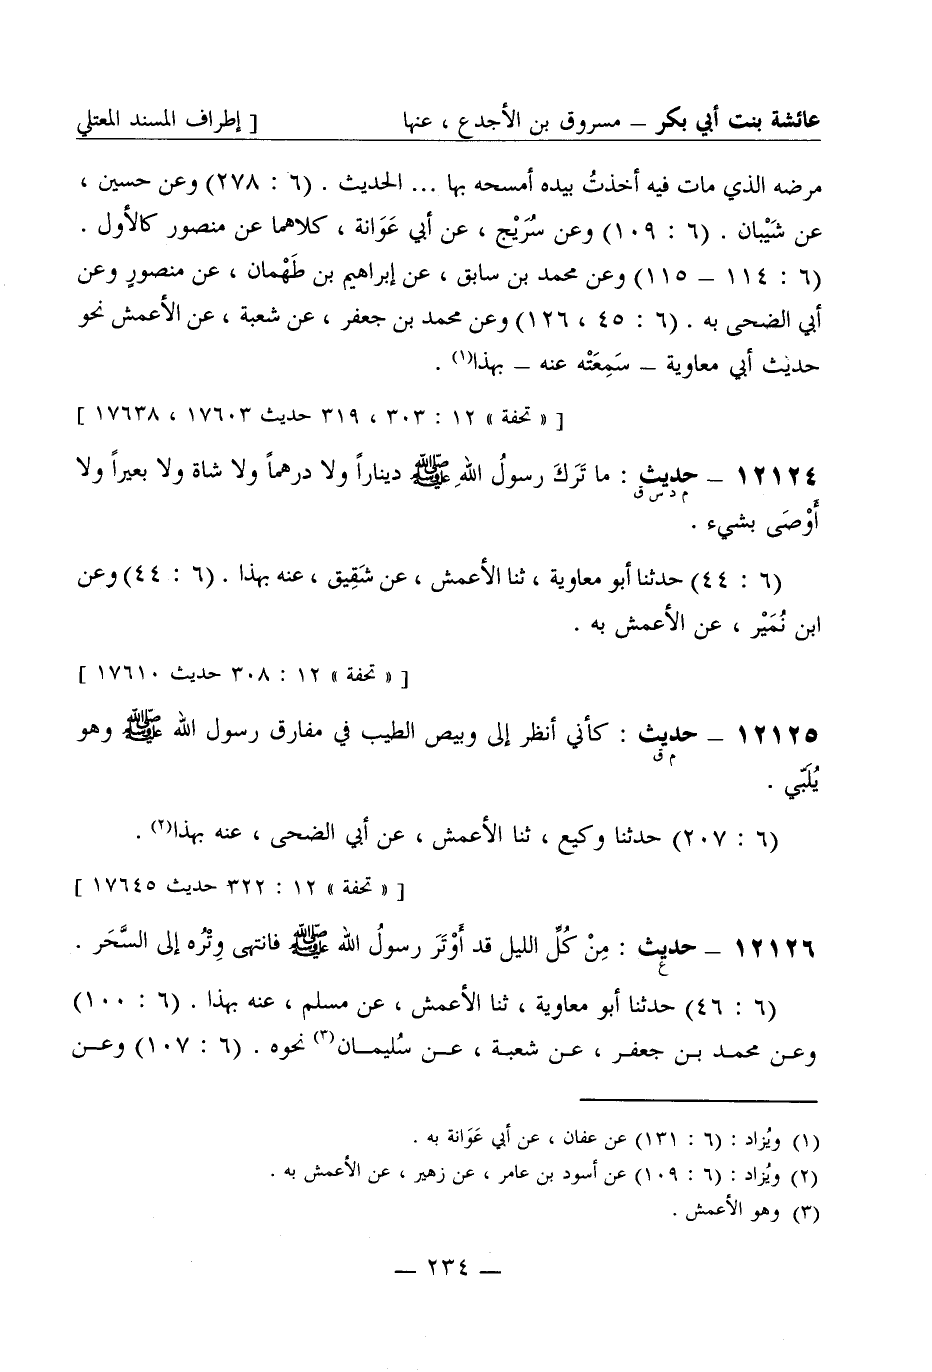 عائشة بنت أبي بكر – مسروق بن الأجدع ، عنها [ إطراف المسند المعتلي
مرضه الذي مات فيه أخذتُ بيده أمسحه بها ... الحديث . (٦ : ٢٧٨) وعن حسين ،
عن شَيْبان . (٦ : ١٠٩) وعن سُرَيْج ، عن أبي عَوَانة ، كلاهما عن منصور كالأول .
(٦ : ١١٤ – ١١٥) وعن محمد بن سابق ، عن إبراهيم بن طَهْمان ، عن منصورٍ وعن
أبي الضحى به . (٦ : ٤٥ ، ١٢٦) وعن محمد بن جعفر ، عن شعبة ، عن الأعمش نحو
حديث أبي معاوية – سَمِعَتْه عنه – بهذا(١) .
[ « تحفة » ١٢ : ٣٠٣ ، ٣١٩ حديث ١٧٦٠٣ ، ١٧٦٣٨ ]
١٢١٢٤ – حديث : ما تَرَكَ رسولُ اللهِ ﷺ ديناراً ولا درهماً ولا شاة ولا بعيراً ولا
م د س ق
أَوْصَى بشيء .
(٦ : ٤٤) حدثنا أبو معاوية ، ثنا الأعمش ، عن شَقِيق ، عنه بهذا . (٦ : ٤٤) وعن
ابن نُمَيْر ، عن الأعمش به .
[ « تحفة » ١٢ : ٣٠٨ حديث ١٧٦١٠ ]
١٢١٢٥ – حديث : كأني أنظر إلى وبيص الطيب في مفارق رسول الله ﷺ وهو
م ق
يُلَبّي .
(٦ : ٢٠٧) حدثنا وكيع ، ثنا الأعمش ، عن أبي الضحى ، عنه بهذا(٢) .
[ « تحفة » ١٢ : ٣٢٢ حديث ١٧٦٤٥ ]
١٢١٢٦ – حديث : مِنْ كُلِّ الليل قد أَوْتَرَ رسولُ الله ﷺ فانتهى وِتْرُه إلى السَّحَر .
ع
(٦ : ٤٦) حدثنا أبو معاوية ، ثنا الأعمش ، عن مسلم ، عنه بهذا . (٦ : ١٠٠)
وعن محمد بن جعفر ، عن شعبة ، عن سُليمان(٣) نحوه . (٦ : ١٠٧) وعن
(١) ويُزاد : (٦ : ١٣١) عن عفان ، عن أبي عَوَانة به .
(٢) ويُزاد : (٦ : ١٠٩) عن أسود بن عامر ، عن زهير ، عن الأعمش به .
(٣) وهو الأعمش .
– ٢٣٤ –